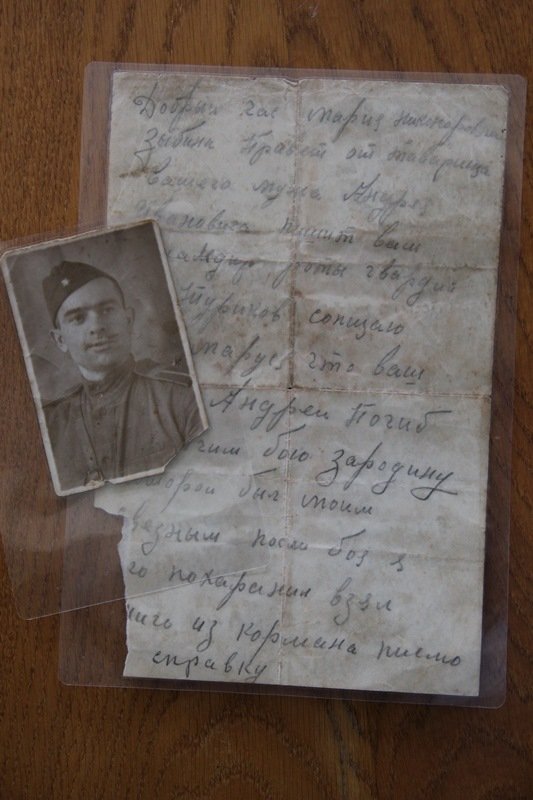 Добрый час мария никоноровна
Зыбина Привет от товарища
вашего мужа Андрея
ивановича пишит ваш
роты гвардии
Туриков сопщаю
маруся что ваш
Андреи Погиб
бою зародину
был моим
после боя я
го похаранил взял
него из кормана писмо
справку